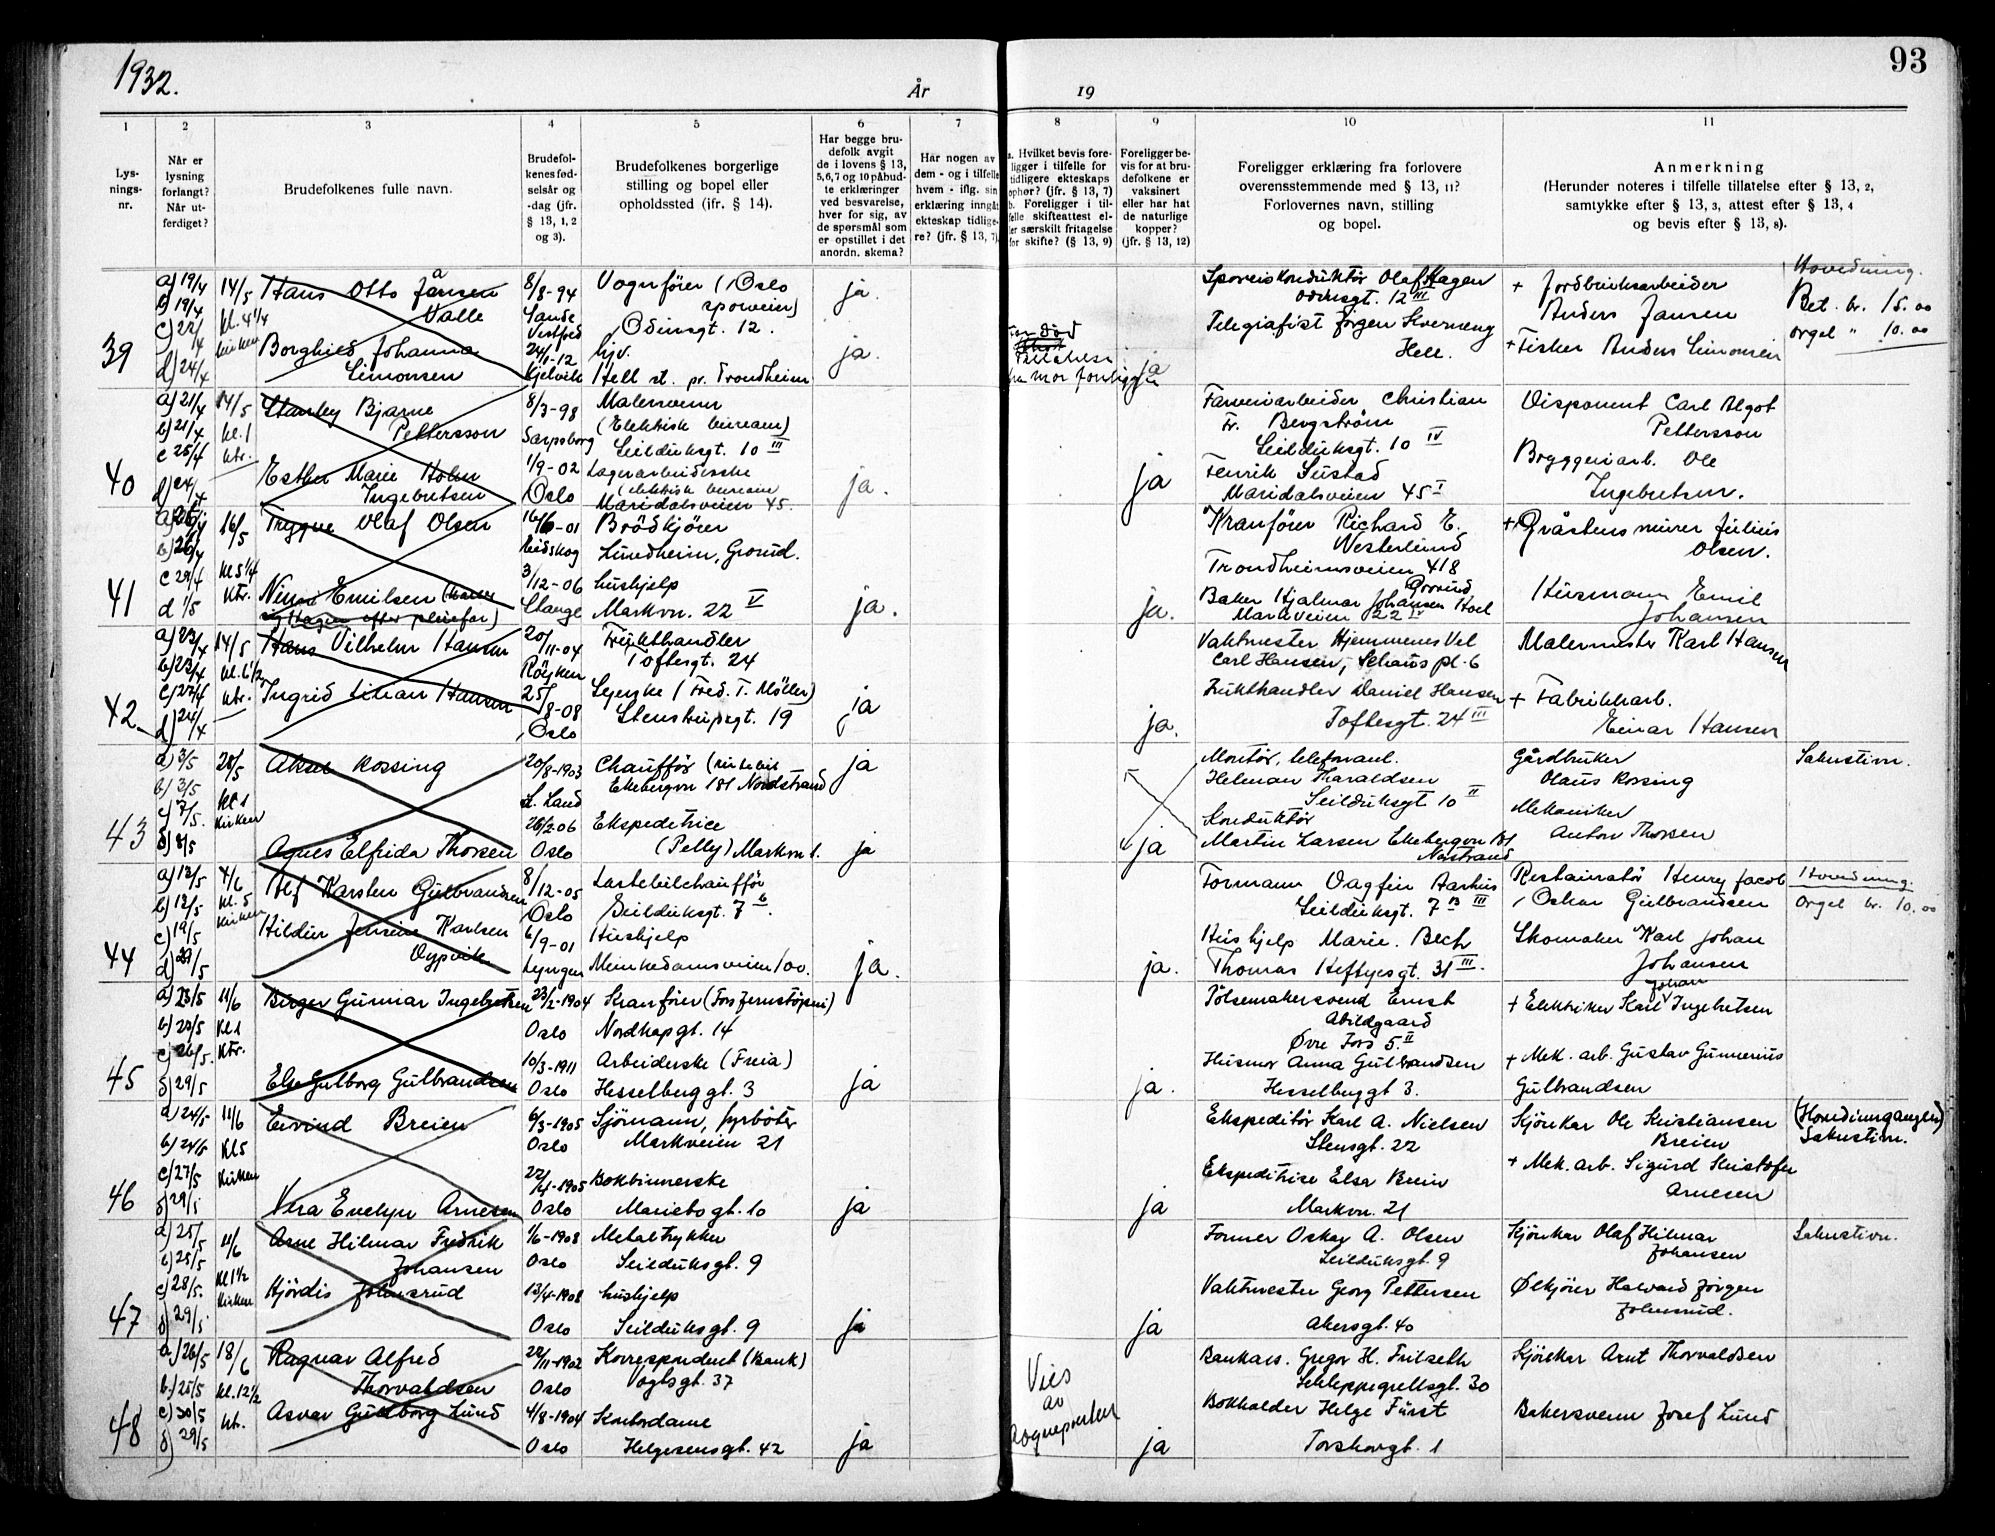 1932.
År
19
93
1
2
3
4
5
6
7
8
9
10
11
Lys-
nings-
nr.
Når er
lysning
forlangt?
Når ut-
ferdiget?
Brudefolkenes fulle navn.
Brudefol-
kenes fød-
selsår og
-dag (jfr.
§ 13, 1, 2
og 3).
Brudefolkenes borgerlige
stilling og bopel eller
opholdssted (ifr. § 14).
Har begge bru-
defolk avgit
de i lovens § 13,
5,6,7 og 10 påbud-
te erklæringer
ved besvarelse,
hver for sig, av
de spørsmål som
er opstillet i det
anordn. skema?
Har nogen av
dem - og i tilfelle
hvem - iflg. sin
erklæring inngåt
ekteskap tidlige-
re? (jfr. § 13, 7).
a. Hvilket bevis fore-
ligger i tilfelle for
tidligere ekteskaps
ophør? (jfr. § 13, 7)
b. Foreligger i til-
felle skifteattest el-
ler særskilt fritagelse
for skifte? (§ 13, 9)
Foreligger be-
vis for at bru-
defolkene er
vaksinert
eller har hat
de naturlige
kopper?
(jfr. § 13, 12)
Foreligger erklæring fra forlovere
overensstemmende med § 13, 11?
Forlovernes navn, stilling
og bopel.
Anmerkning
(Herunder noteres i tilfelle tillatelse efter § 13, 2,
samtykke efter § 13, 3, attest efter § 13, 4
og bevis efter § 13, 8).
39
a) 19/4
b) 19/4
c) 22/4
d) 24/4
14/5
kl. 4 1/4
kirken
Hans Otto Jansen
Valle
Borghild Johanna
Simonsen
8/8-94
Sande
Vestfold
24/1-12
Kjelvik
Vognfører (Oslo
sporveier)
Odinsgt. 12.
hjv.
Hell st. pr. Trondheim
ja.
ja.
Far død
Tillatelse
fra mor foreligger
ja
Sporveiskonduktør Olaf Hagen
Odinsgt. 12 III
Telegrafist Jörgen Kverneng
Hell.
+ Jordbruksarbeider
Anders Jansen
+ Fisker Anders Simonsen
Hovedning.
Bet. kr. 15.00
orgel " 10.00
40
a) 21/4
b) 21/4
c 25/4
d) 24/4
14/5
kl. 1
ktr.
Stanley Bjarne
Pettersson
Esther Marie Holm
Ingebretsen
8/3-98
Sarpsborg
1/9-02
Oslo
Malersvenn
(Elektrisk bureau)
Seilduksgt. 10 III
Lagerarbeiderske
(elektrisk bureau
Maridalsveien 45.
ja.
ja
Farveriarbeider Christian
Fr. Bergström
Seilduksgt. 10 IV
Fenrik Sustad
Maridalsveien 45 I
Disponent Carl Algot
Pettersson
Bryggeriarb. Ole
Ingebretsen.
41
a) 26/4
b) 26/4
c 29/4
d 1/5
16/5
kl 5 1/4
ktr.
Trygve Olaf Olsen
Nina Emilsen (kaller
sig Hagen efter pleiefar)
16/6-01
Eidskog
3/12-06
Stange
Brödkjörer
Lundheim, Grorud.
hushjelp
Markvn. 22 V
ja.
ja.
Kranförer Richard E.
Westerlund
Trondheimsveien 418
Grorud
Baker Hjalmar Johansen Hoel
Markveien 22 V
+ Gråstensmurer Julius
Olsen.
Husmann Emil
Johansen
42
a) 23/4
b) 23/4
c) 27/4
d) 24/4
14/5
kl. 6 1/2
ktr.
Hans Vilhelm Hansen
Ingrid Lilian Hansen
20/11-04
Röyken
25/8-08
Oslo
Frukthandler
Toftesgt. 24
Syerske (Fred. T. Möller)
Stenstrupsgt. 19
ja
ja.
Vaktmester Hjemmenes Vel
Carl Hansen, Schaus pl. 6
Frukthandler Daniel Hansen
Toftesgt. 24 III
Malermester Karl Hansen
+ Fabrikkarb.
Einar Hansen
43
a) 3/5
b) 3/5
c) 7/5.
d) 8/5
28/5
Kl 1
Kirken
Aksel Rossing
Agnes Elfrida Thorsen
20/8-1903
S. Land
26/2-06
Oslo
Chaufför (
Ekebergvn 181 Nordstrand
Ekspeditrice
(Pelly) Markvn 1.
ja
ja
ja
Montör, telefonanl.
Helmar Haraldsen
Seilduksgt 10 II
Konduktör
Martin Larsen Ekebergvn 181
Norstrand
Gårdbruker
Olaus Rossing
Mekaniker
Anton Thorsen
Sakristivn.
44
a) 12/5
b) 12/5
c) 19/5
d) 29/5
4/6
kl. 5
kirken
Alf Karsten Gulbrandsen
Hildur Jensine Karlsen
Dypvik
8/12-05
Oslo
6/9-01
Lyngen
Lastebilchaufför
Seilduksgt. 7 b.
Hushjelp
Munkedamsveien 100.
ja.
ja.
Formann Dagfin Aarhus
Seilduksgt. 7 B III
Hushjelp Marie. Bech
Thomas Heftyesgt. 31 III.
Restauratör Henry Jacob
Oskar Gulbrandsen
Skomaker Karl Johan
Johansen
Hovedning.
Orgel kr. 10.00
45
a) 23/5
b) 23/5
c) 26/5.
d) 29/5
11/6
Kl 1
Ktr.
Birger Gunnar Ingebretsen
Else Gulborg Gulbrandsen
23/2-1904
Oslo
10/3-1911
Oslo
Kranförer (Fors Jernstöperi)
Nordkapgt. 14
Arbeiderske (Freia)
Hesselberggt. 3
ja
ja.
Pölsemakersvend Ernst
Abildgaard
Øvre Foss 5. II
Husmor Anna Gulbrandsen
Hesselberggt 3.
Johan
+ Elektriker Karl Ingebretsen
+ Mek. arb. Gustav Gunnerius
Gulbrandsen
46
a) 24/5
b) 24/5
c) 27/5
d) 29/5
11/6
Kl 5
Kirken
Eivind Breien
Vera Evelyn Arnesen
6/3-1905
Oslo
22/4-1905
Oslo
Sjömann, fyrböter
Markveien 21
Bokbinnerske
Mariebogt. 10
ja
ja
Ekspeditör Karl A. Nielsen
Stensgt. 22
Ekspeditrise Elsa Breien
Markvn. 21
Kjörekar Ole Kristiansen
Breien
+ Mek. arb. Sigurd Kristofer
Arnesen
(Hovedinngangen)
Sakristivn.
47
a) 25/5
b) 25/5
c) 28/5.
d) 29/5
11/6
Kl 1 1/2
Kirken
Arne Hilmar Fredrik
Johansen
Hjördis Johnsrud
1/6-1908
Oslo
13/4-1908
Oslo
Metaltrykker
Seilduksgt. 9
hushjelp
Seilduksgt. 9
ja
ja
Former Oskar A. Olsen
Seilduksgt. 9
Vaktmester Georg Pettersen
Akersgt. 40
Kjörekar Olaf Hilmar
Johansen
Ølkjörer Halvard Jörgen
Johnsrud.
Sakristivn.
48
a.) 26/5
b.) 25/5
c) 30/5
d) 29/5
18/6
kl. 12 1/2
ktr.
Ragnar Alfred
Thorvaldsen
Asvor Guldborg Lund
22/11-1902
Oslo
4/8-1904
Oslo
Korrespondent (Bank)
Vogtsgt. 37
Kontordame
Helgesensgt. 42
ja
Vies
av
sognepresten
ja
Bankass. Gregor H. Fritzeth
Schleppegrellsgt. 30
Bokholder Helge Fürst
Torshovgt. 1
Kjörekar Arnt Thorvaldsen
Bakersvenn Josef Lund